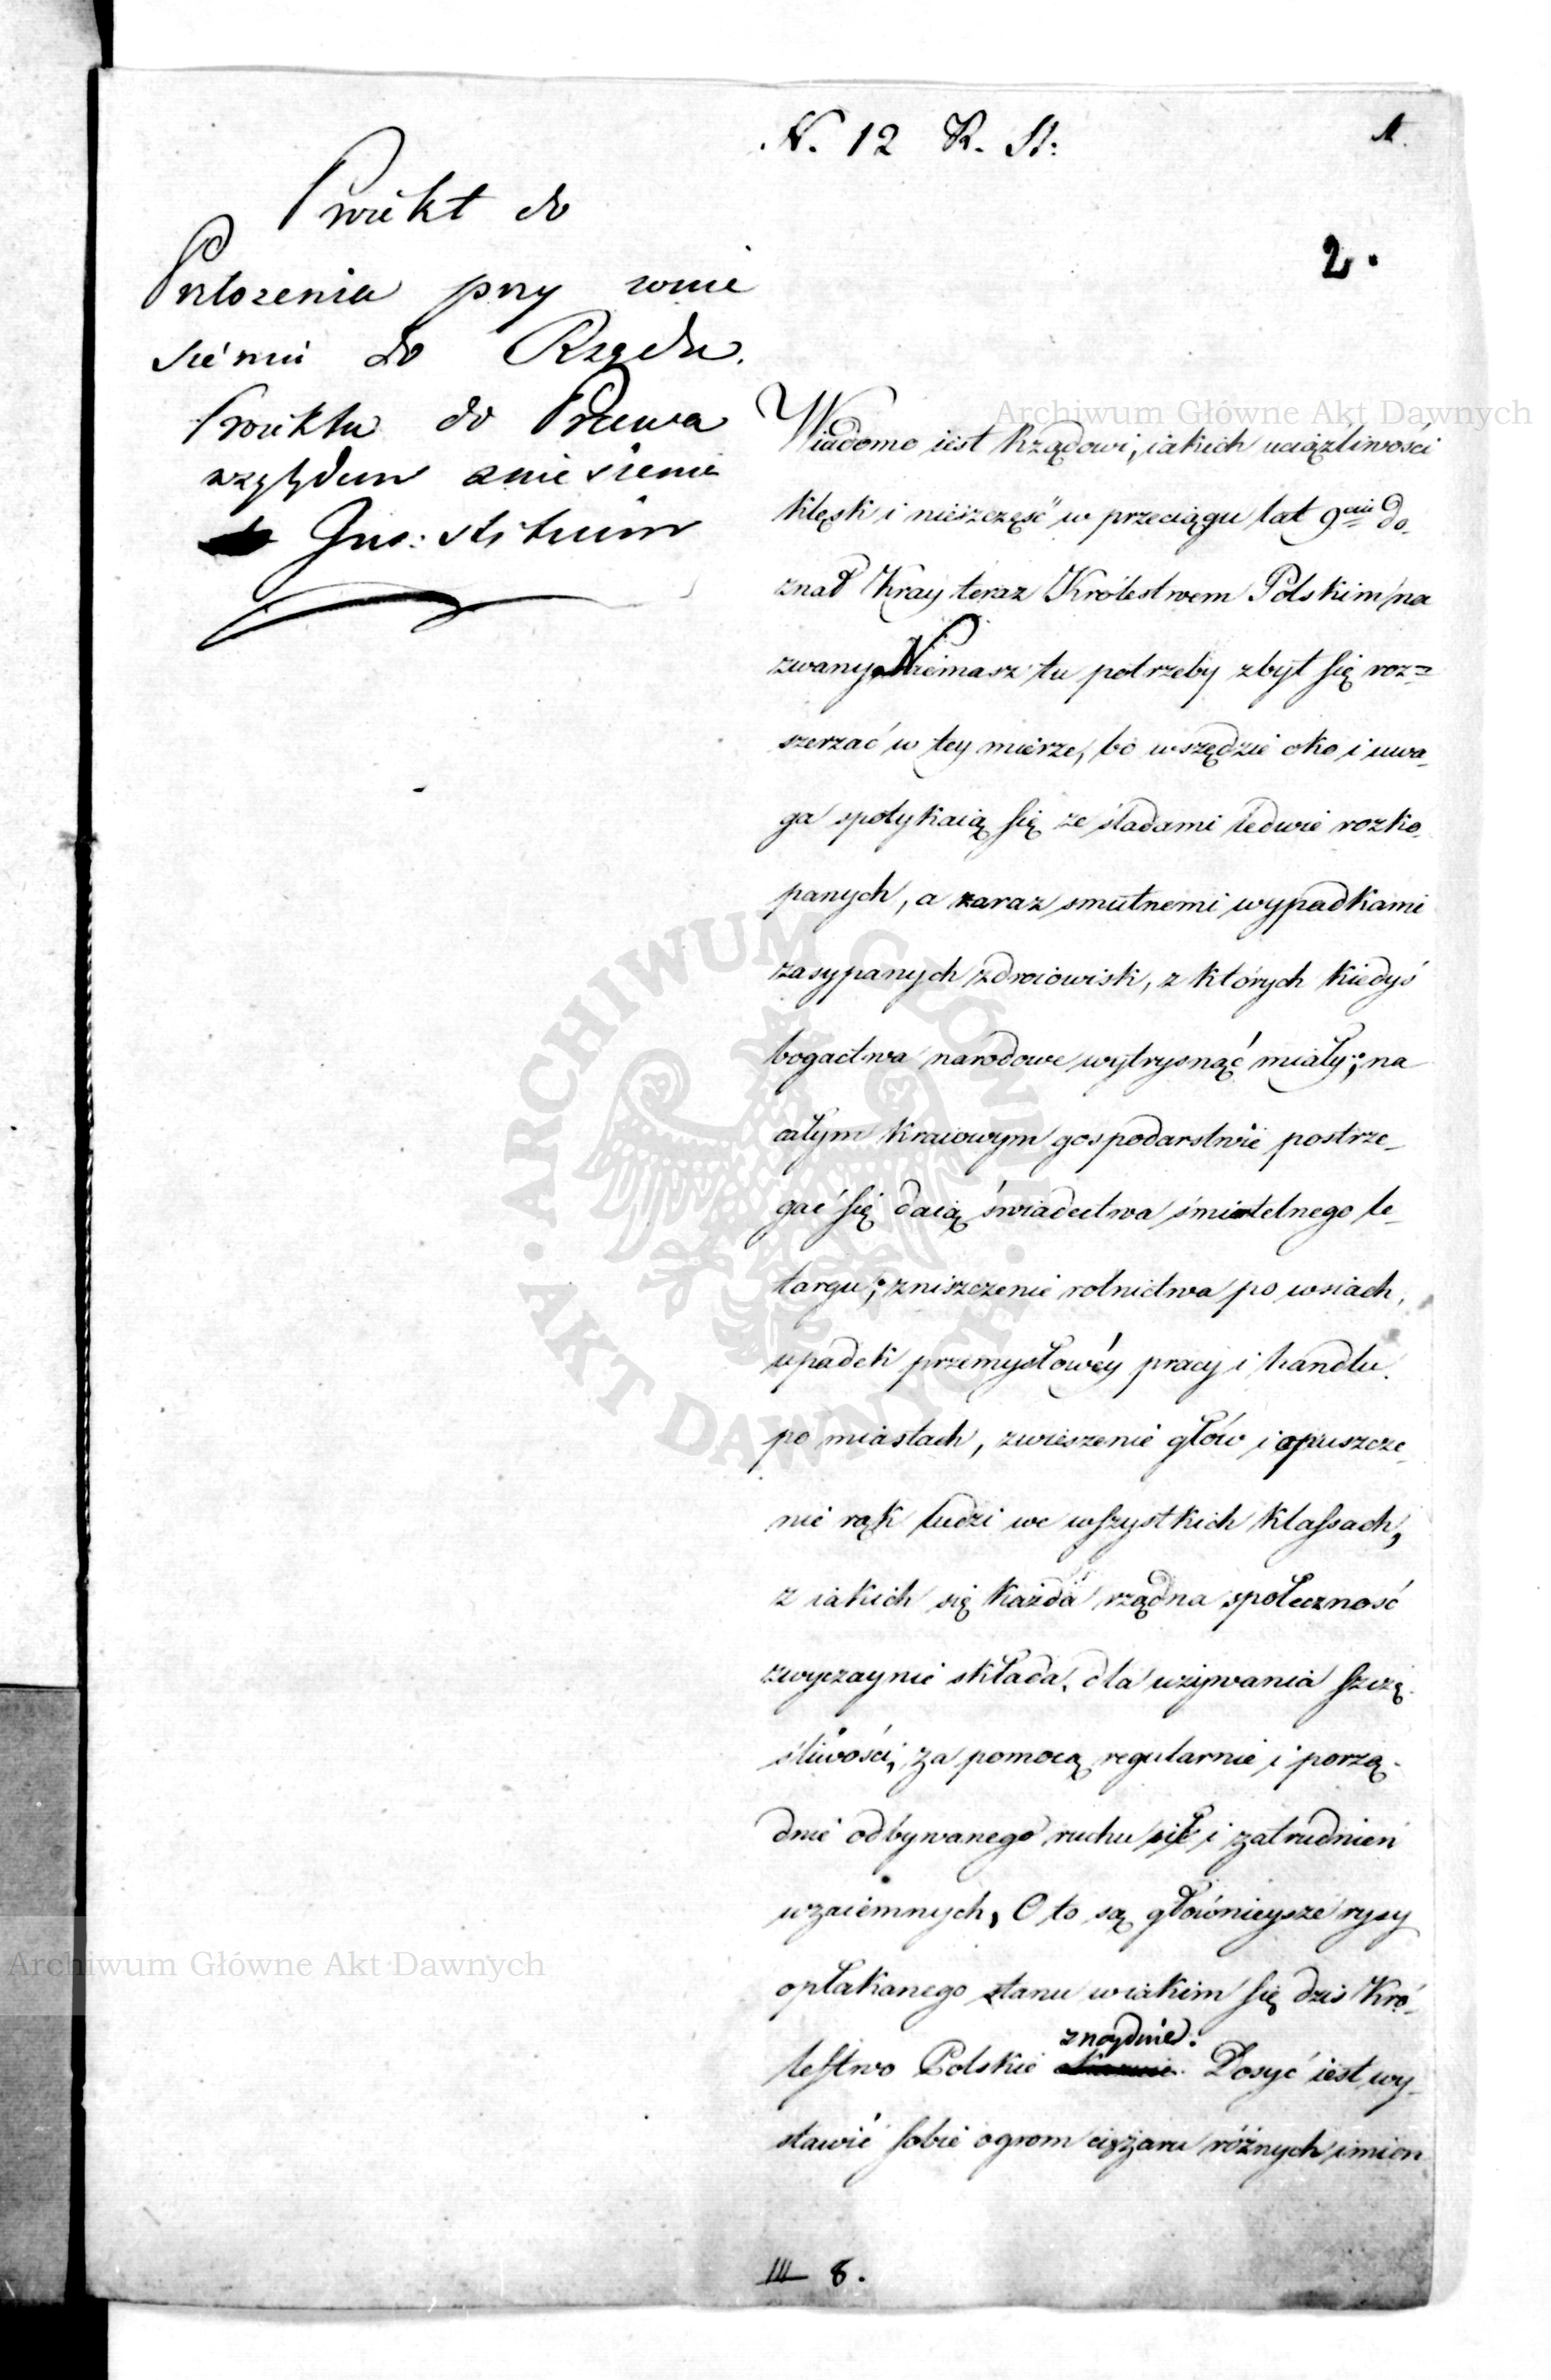 N. 12 R. St:
1.
2.
Proiekt do
Przełozenia przy wnie
sieniu do Rządu.
Proiektu do Prawa
względem zniesienia
Wiadomo iest Rządowi, iakich uciążliwości
klęsk i nieszczęść w przeciągu lat 9ciu do„
znał Kray teraz Królestwem Polskim na
zwany. Niemasz tu potrzeby zbyt się roz=
szerzać w tey mierze, bo wszędzie oko i uwa„
ga spotykaią się ze śladami ledwie rozko„
panych, a zaraz smutnemi wypadkami
zasypanych zdroiowisk, z których kiedyś
bogactwa narodowe wytrysnąć miały; na
całym kraiowym gospodarstwie postrze„
gać się daią świadectwa śmiertelnego le„
targu; zniszczenie rolnictwa po wsiach,
upadek przemysłowéy pracy i handlu
po miastach, zwieszenie głów i opuszcze„
nie rąk ludzi we wszystkich klassach,
z iakich się każda rządna społeczność
zwyczaynie składa, dla używania szczę„
śliwości, za pomocą regularnie i porzą„
dnie odbywanego ruchu sił i zatrudnień
wzaiemnych, Oto są głównieysze rysy
opłakanego stanu w iakim się dziś Kró„
znayduie.
lestwo Polskie Dosyć iest wy„
stawić sobie ogrom ciężaru różnych imion
III 8.
Archiwum Główne Akt Dawnych
Archiwum Główne Akt Dawnych
ARCHIWUM GŁÓWNE · AKT DAWNYCH ·